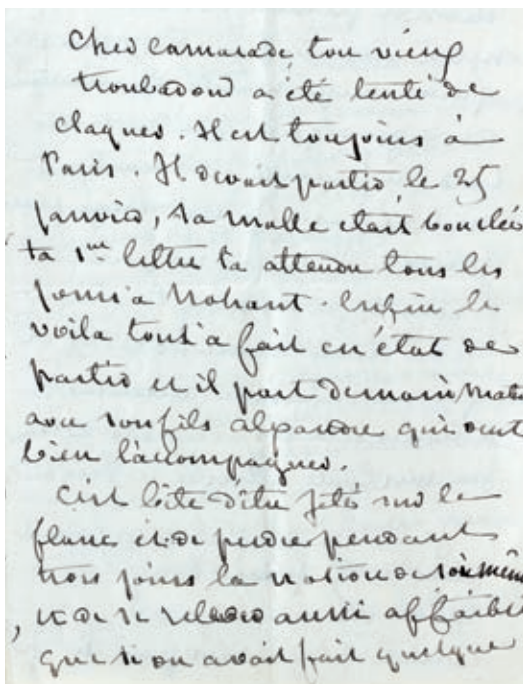 Cher camarade, ton vieux
troubadour a été tenté de
claquer. Il est toujours à
Paris. Il devait partir le 25
janvier, sa malle était bouclée
ta 1re lettre t'a attendu tous les
jours à Nohant. Enfin le
voilà tout à fait en état de
partir et il part demain matin
avec son fils alexandre qui veut
bien l'accompagner.
C'est bête d'être jeté sur le
flanc et de perdre pendant
trois jours la notion de soi-même
et de se relever aussi affaibli
que si on avait fait quelque